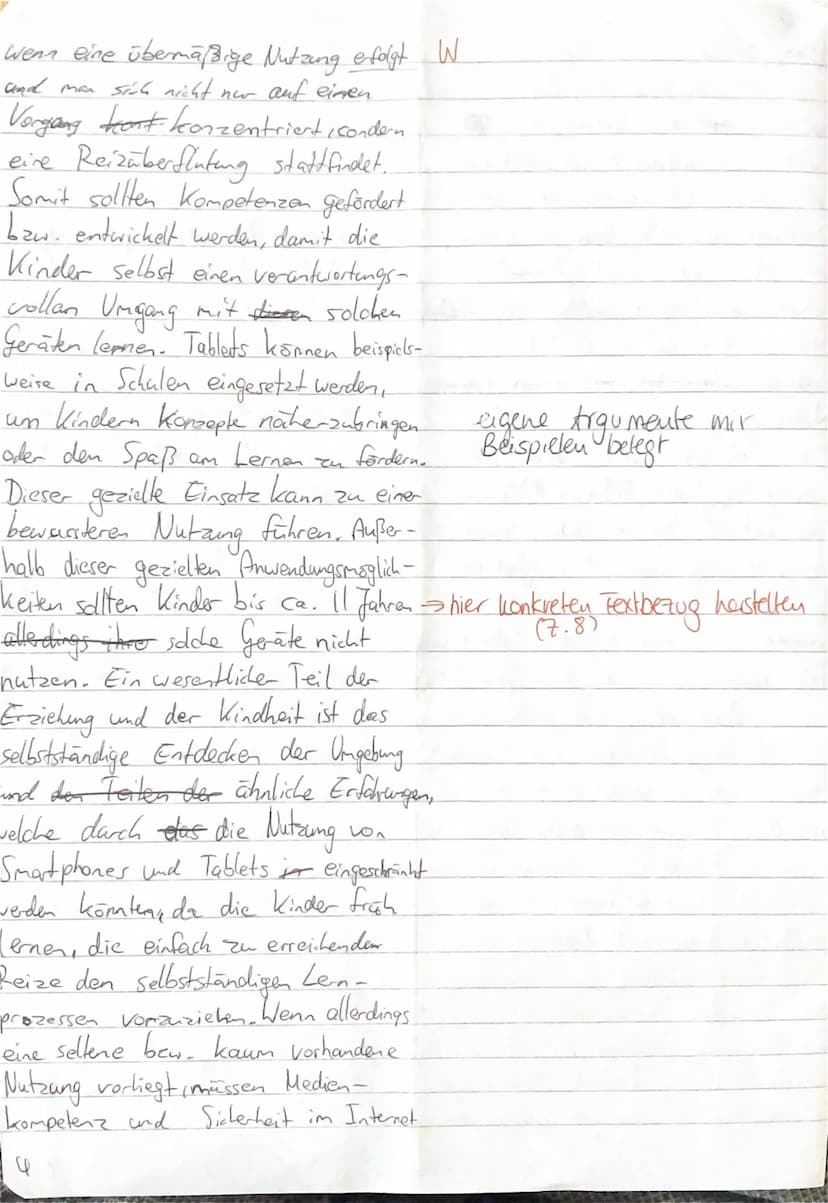 wenn eine übermäßige Nutzung erfolgt W
und man sich nicht nur auf einen
Vorgang kont konzentriert, sondern
eine Reizüberflutung stattfindet.
Somit sollten Kompetenzen gefördert
bzw. entwickelt werden, damit die
Kinder selbst einen verantwortungs-
vollen Umgang mit diesen solchen
Geräten lernen. Tablets können beispiels-
weise in Schulen eingesetzt werden,
um Kindern Konzepte näherzubringen
oder den Spaß am Lernen zu fördern.
eigene Argumente mit
Beispielen belegt
Dieser gezielte Einsatz kann zu einer
bewussteren Nutzung führen. Außer-
halb dieser gezielten Anwendungsmöglich-
keiten sollten Kinder bis ca. 11 Jahren → hier konkreten Textbezug herstellen
(Z. 8)
allerdings ihre solche Geräte nicht
nutzen. Ein wesentlicher Teil der
Erziehung und der Kindheit ist das
selbstständige Entdecken der Umgebung
und den Teilen der ähnliche Erfahrungen,
welche durch das die Nutzung von
Smartphones und Tablets eingeschränkt
werden könnten, da die Kinder früh
lernen, die einfach zu erreichenden
Reize den selbstständigen Lern-
prozessen vorzuziehen. Wenn allerdings
eine seltene bzw. kaum vorhandene
Nutzung vorliegt, müssen Medien-
kompetenz und Sicherheit im Internet
4